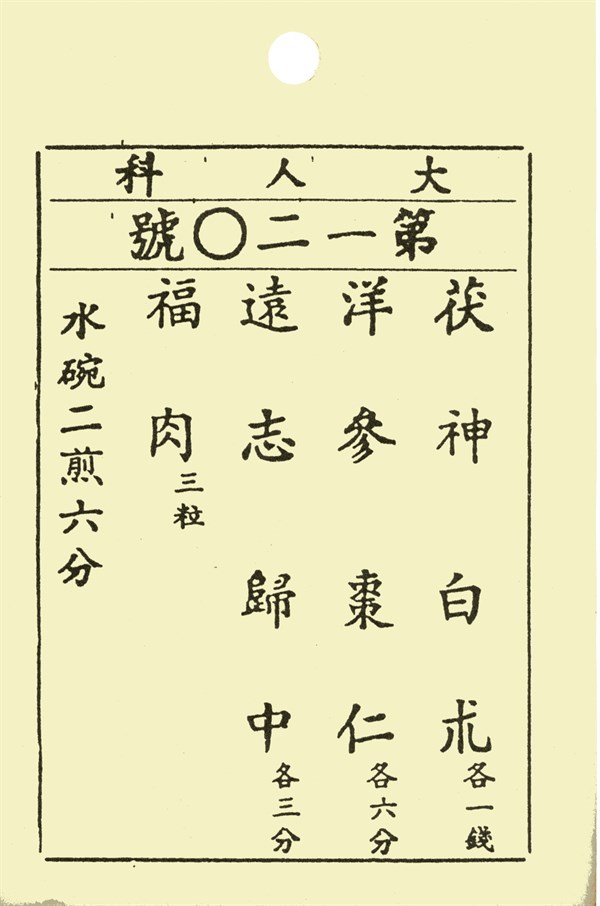 大人科
第一二〇號
茯神白朮各一錢
洋參棗仁各六分
遠志歸中各三分
福肉三粒
水碗二煎六分